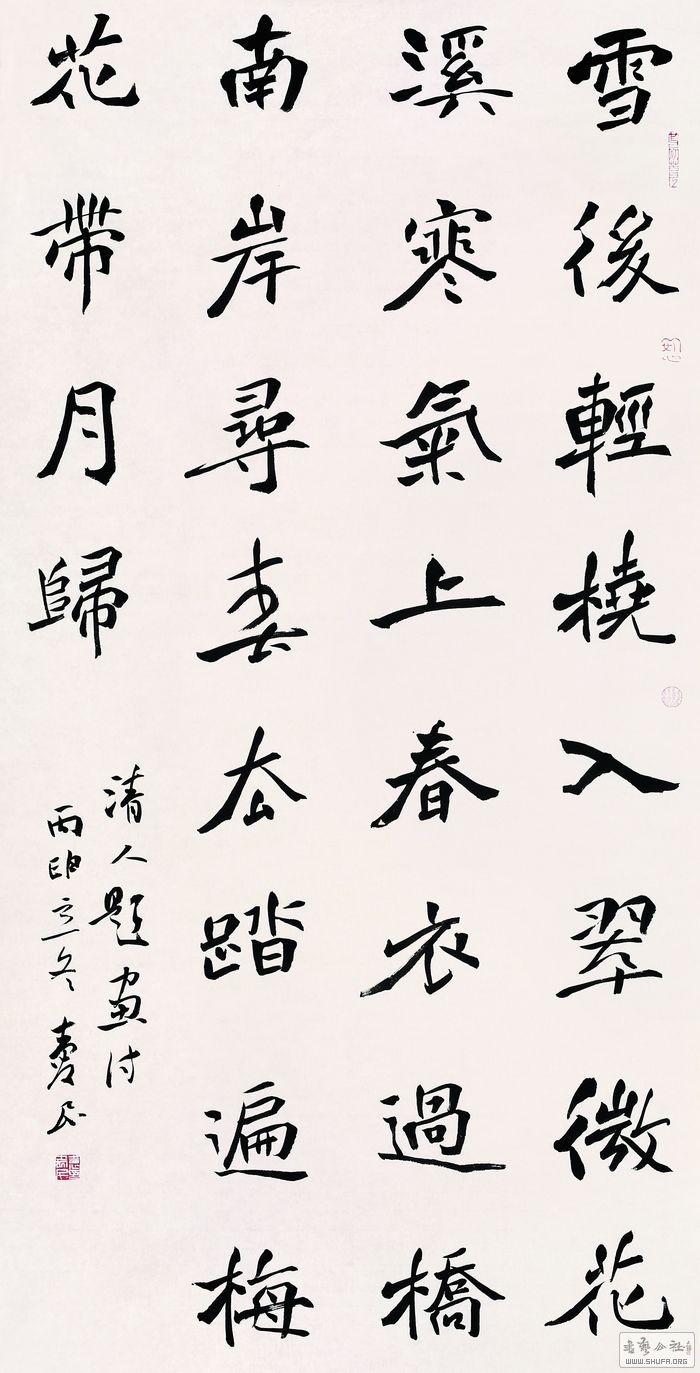 雪後輕橈入翠微花
溪寒氣上春衣過橋
南岸尋春去踏遍梅
花帶月歸
清人題畫詩
丙申立冬 壽民
書藝公社
WWW.SHUFA.ORG